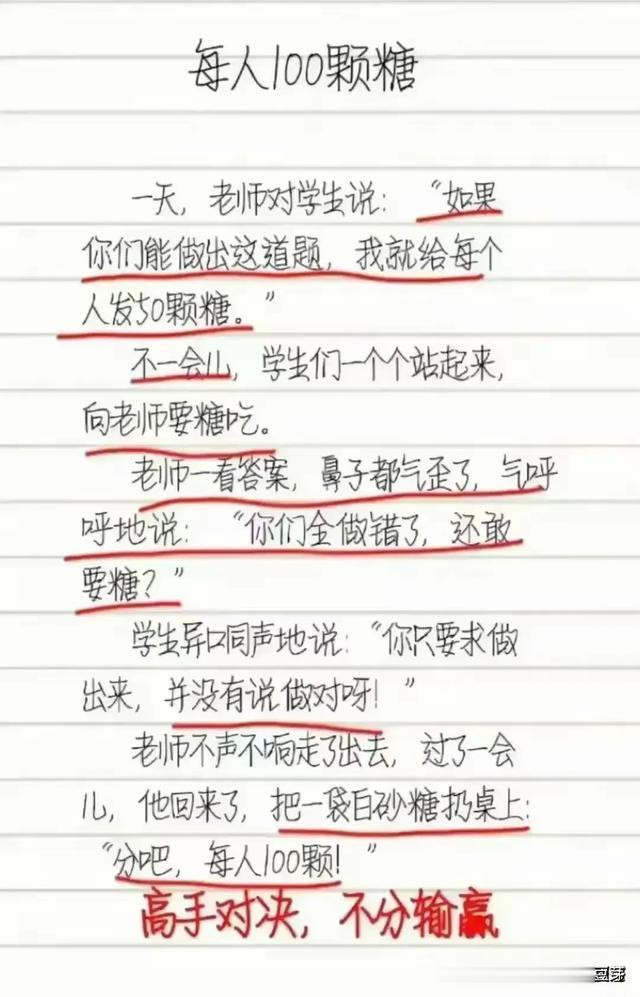 每人100颗糖
一天，老师对学生说：“如果
你们能做出这道题，我就给每个
人发50颗糖。”
不一会儿，学生们一个个站起来，
向老师要糖吃。
老师一看答案，鼻子都气歪了，气呼
呼地说：“你们全做错了，还敢
要糖？”
学生异口同声地说：“你只要求做
出来，并没有说做对呀！”
老师不声不响走了出去，过了一会
儿，他回来了，把一袋白砂糖扔桌上：
“分吧，每人100颗！”
高手对决，不分输赢
豆芽